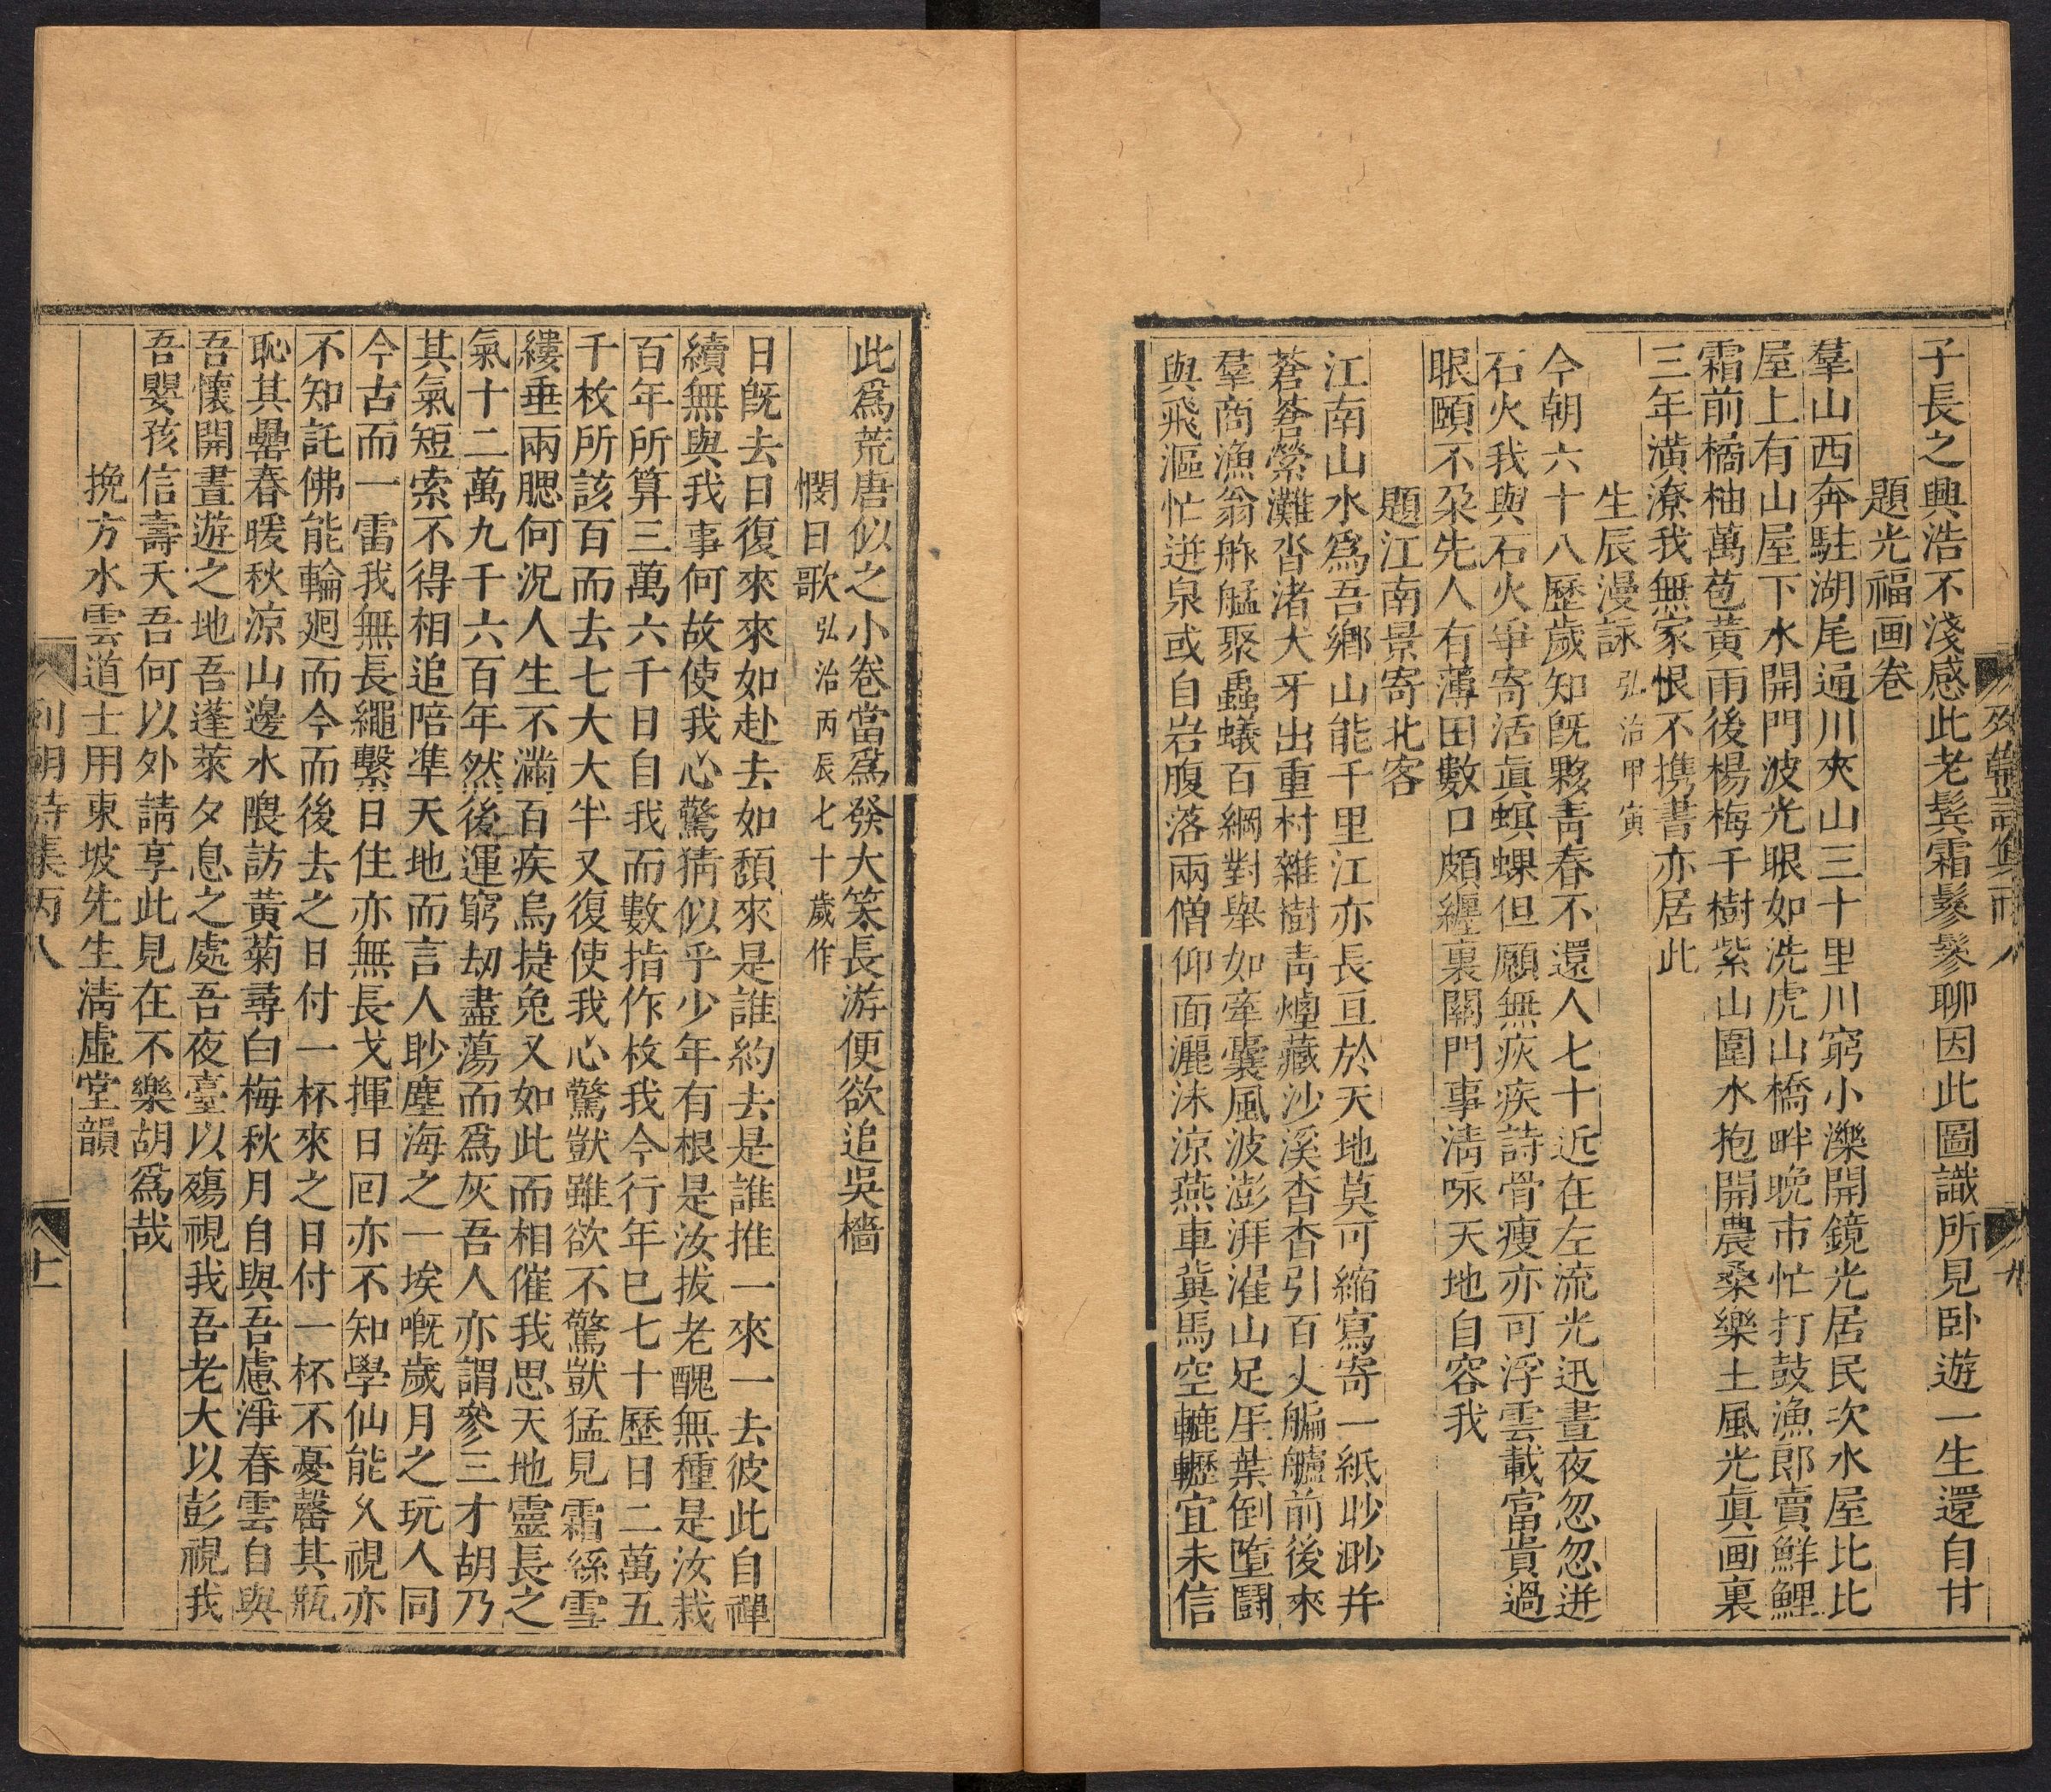 子長之興浩不淺感此老髯霜鬖鬖聊因此圖識所見卧遊一生還自甘
題光福画卷
羣山西奔駐湖尾通川夾山三十里川窮小濼開鏡光居民次水屋比比
屋上有山屋下水開門波光眼如洗虎山橋畔晚市忙打鼓漁郎賣鮮鯉
霜前橘柚萬苞黃雨後楊梅千樹紫山圍水抱開農桑樂土風光眞画裏
三年潢潦我無家恨不携書亦居此
生辰漫詠 弘治甲寅
今朝六十八歷歲知旣夥靑春不還人七十近在左流光迅晝夜忽忽迸
石火我與石火爭寄活眞螟蜾但願無疢疾詩骨瘦亦可浮雲載富貴過
眼頤不朶先人有薄田數口頗纏裹關門事淸咏天地自容我
題江南景寄北客
江南山水爲吾鄕山能千里江亦長亘於天地莫可縮寫寄一紙眇渺并
蒼蒼縈灘沓渚犬牙出重村雜樹靑煙藏沙溪杳杳引百丈艑艫前後來
羣商漁翁舴艋聚蟲蟻百網對舉如牽囊風波澎湃濯山足厓葉倒墮鬪
與飛漚忙迸泉或自岩腹落兩僧仰面灑沫涼燕車冀馬空轆轣宜未信
此爲荒唐似之小卷當爲發大笑長游便欲追吳檣
憫日歌 弘治丙辰七十歲作
日旣去日復來來如赴去如頽來是誰約去是誰推一來一去彼此自禪
續無與我事何故使我心驚猜似乎少年有根是汝拔老醜無種是汝栽
百年所算三萬六千日自我而數指作枚我今行年已七十歷日二萬五
千枚所該百而去七大大半又復使我心驚獃雖欲不驚獃猛見霜絲雪
縷垂兩腮何況人生不滿百疾烏㨗兔又如此而相催我思天地靈長之
氣十二萬九千六百年然後運窮刼盡蕩而爲灰吾人亦謂參三才胡乃
其氣短索不得相追陪準天地而言人眇塵海之一埃嘅歲月之玩人同
今古而一雷我無長繩繫日住亦無長戈揮日囘亦不知學仙能久視亦
不知託佛能輪𢌞而今而後去之日付一杯來之日付一杯不憂罄其瓶
恥其罍春暖秋涼山邊水隈訪黃菊尋白梅秋月自與吾慮淨春雲自與
吾懷開晝遊之地吾蓬萊夕息之處吾夜臺以殤視我吾老大以彭視我
吾嬰孩信壽夭吾何以外請享此見在不樂胡爲哉
挽方水雲道士用東坡先生淸虛堂韻
列朝詩集丙八
十